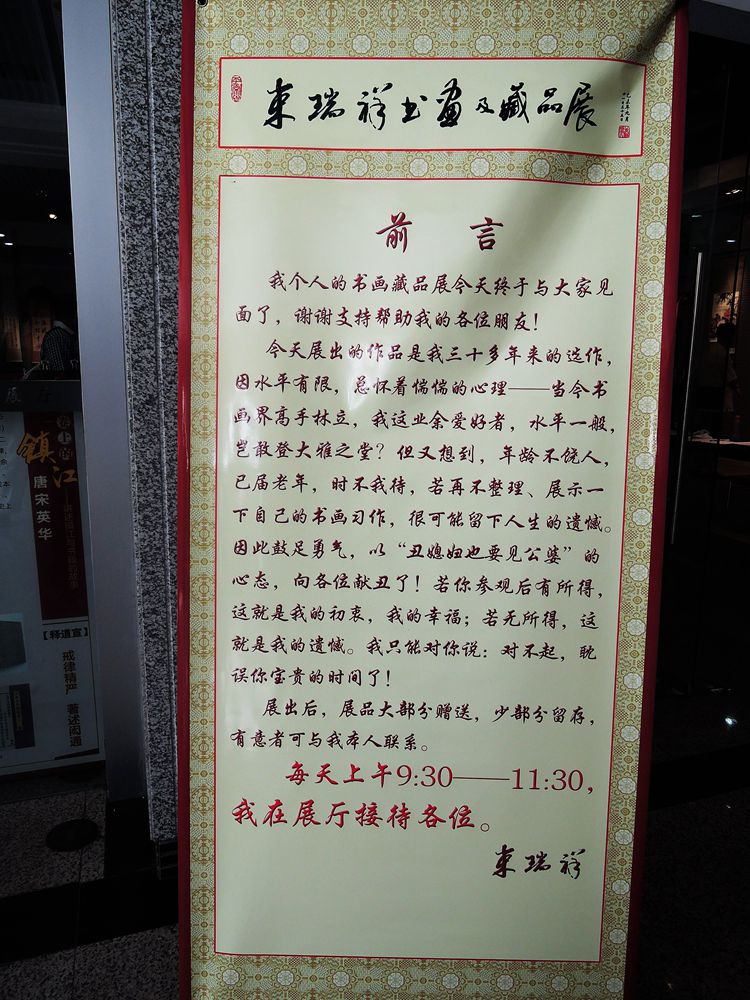 東瑞祥书画及藏品展
前言
我个人的书画藏品展今天终于与大家见
面了，谢谢支持帮助我的各位朋友！
今天展出的作品是我三十多年来的选作，
因水平有限，总怀着惴惴的心理——当今书
画界高手林立，我这业余爱好者，水平一般，
岂敢登大雅之堂？但又想到，年龄不饶人，
已届老年，时不我待，若再不整理、展示一
下自己的书画习作，很可能留下人生的遗憾。
因此鼓足勇气，以“丑媳妇也要见公婆”的
心态，向各位献丑了！若你参观后有所得，
这就是我的初衷，我的幸福；若无所得，这
就是我的遗憾。我只能对你说：对不起，耽
误你宝贵的时间了！
展出后，展品大部分赠送，少部分留存，
有意者可与我本人联系。
每天上午9:30——11:30，
我在展厅接待各位。
東瑞祥
展厅
卷上的
镇江
唐宋英华
【释道宣】
戒律精严 著述闳通